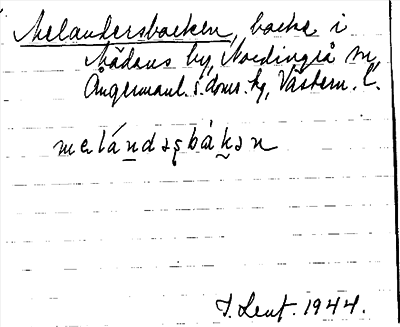 Melandersbacken, backe i
Mädans by, Nordingrå sn,
Ångermanl. s. doms. hg, Västern. l.
melándəʂbàkən
1944.